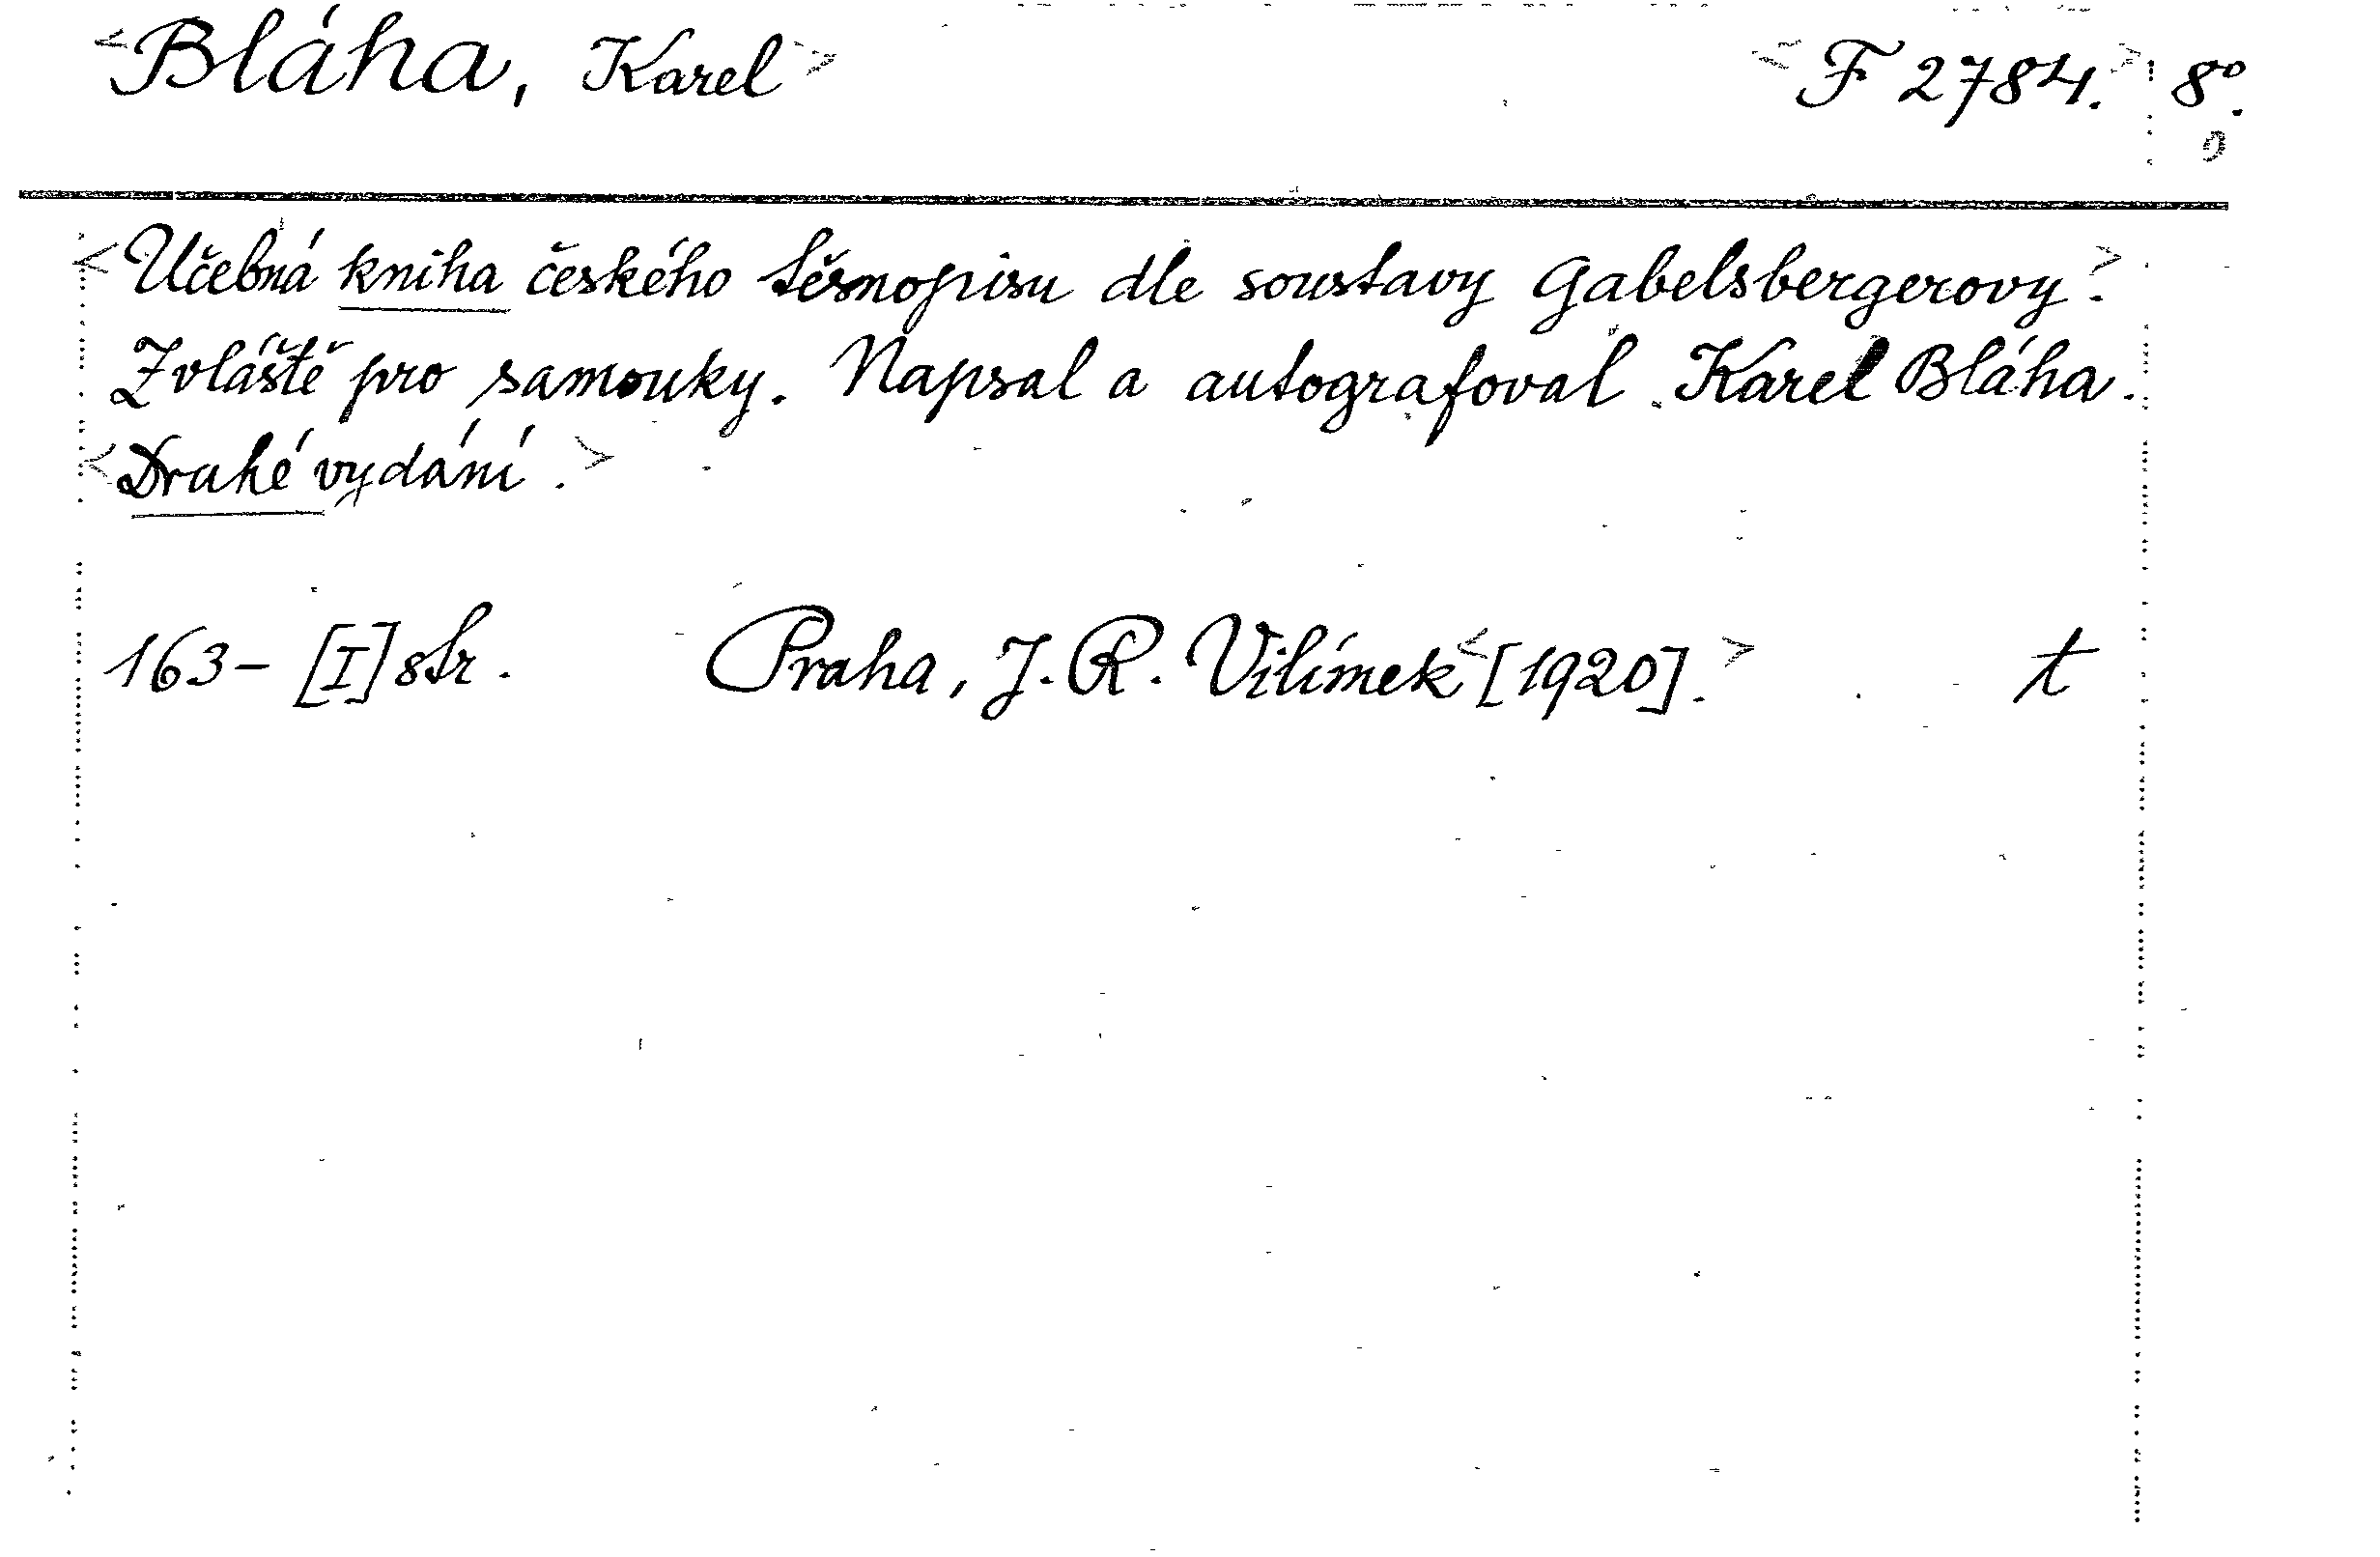 <Bláha, Karel> <F 2784.> 8º.
<Učebná kniha českého těsnopisu dle soustavy Gabelsbergerovy.>
Zvláště pro samouky. Napsal a autografoval Karel Bláha.
<Druhé vydání.>
163-[I] str. Praha, J. R. Vilímek <[1920].> t